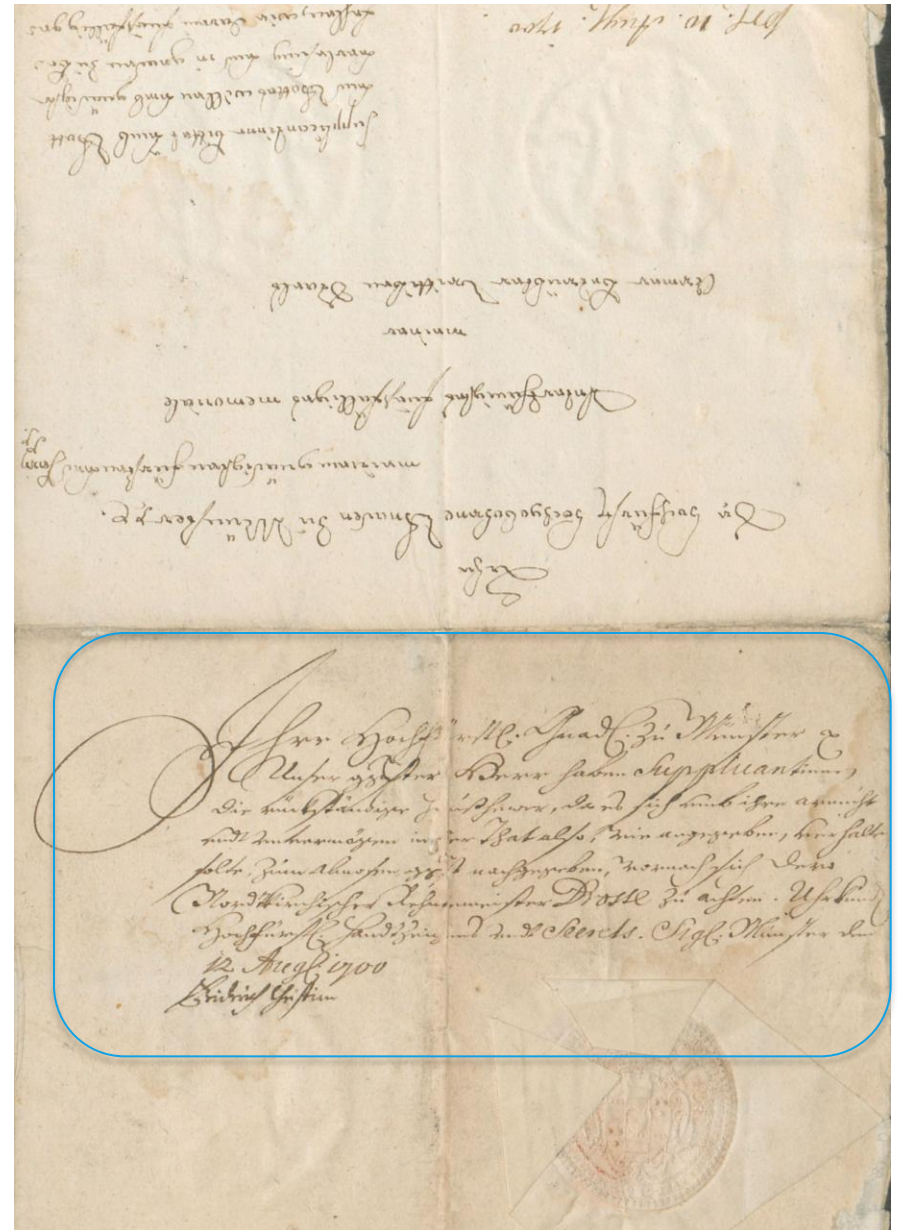 prs. 10. Aug. 1700
supplicantinne bittet umb Gott
und Gottes willen umb gnädigste
zu
lassen, wie darin fueßfällig gebetten
Ahn
Ihro hochfürstl hochgebohrne Gnaden zu Münster p.
meinem gnädigsten fürsten und herrn
Unterthänigstes fuesfälliges memoriale
meiner
Armer betrübter Wittiben
Ihre Hochfürstl: Gnad: zu Münster p
Unser ggster Herr haben Supplicantinnen
die rückständige Heußhewer, da es sich umb ihre armuht
undt unvermögen in der That also, wie angegeben, verhalten
solte, zum Almosen ggst nachgegeben, wornach sich Dero
Nordkirchischer Rhentmeister Droste zu achten. Uhrkundt
Hochfürstl: Handtzeichens undt Secrets. Sigl: Münster den
12. Aug: 1700
Fridrich Christian